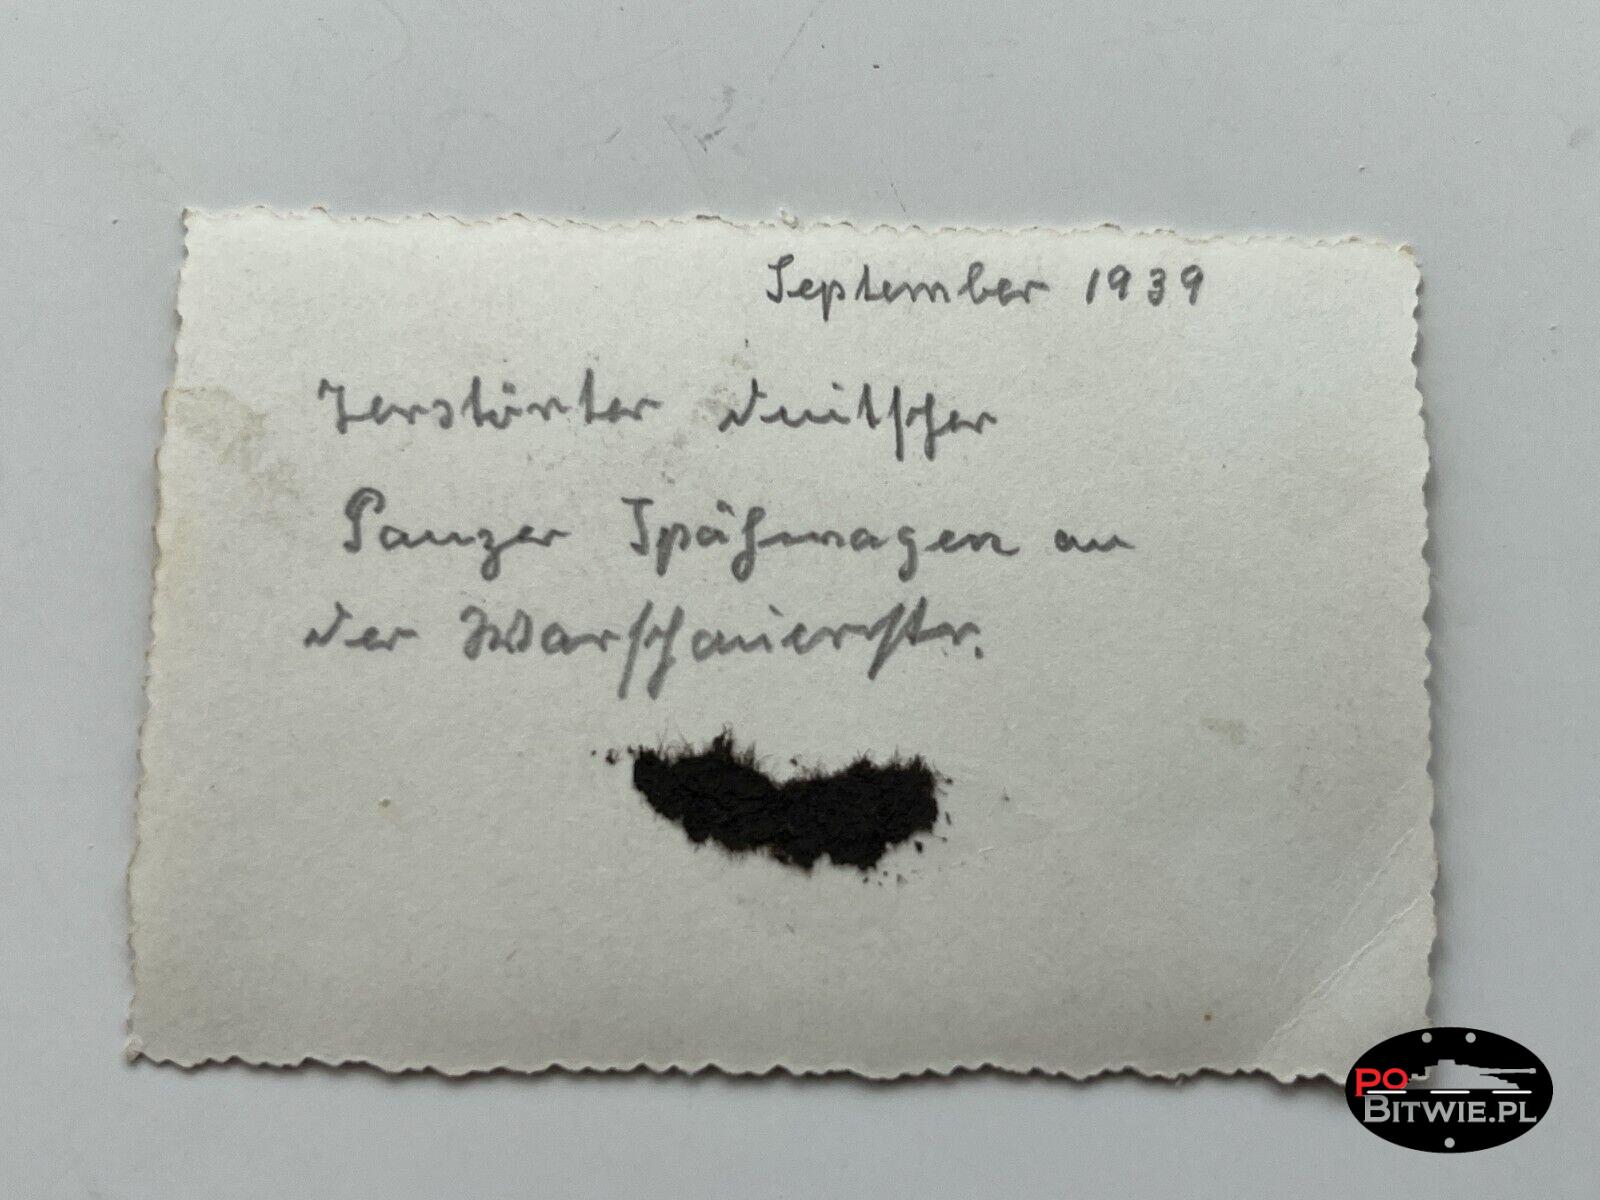 September 1939
Zerstörter deutscher
Panzer Spähwagen an
der Warschauerstr.
PO
BITWIE.PL